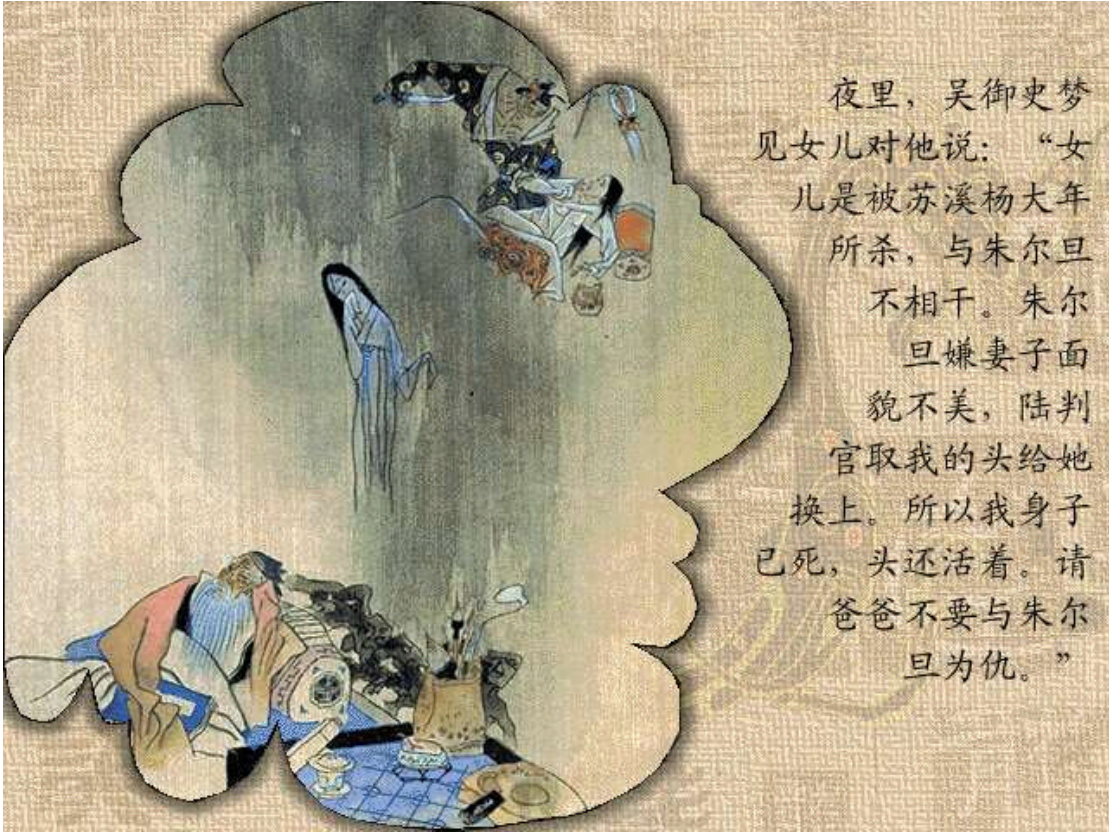 夜里，吴御史梦
见女儿对他说：“女
儿是被苏溪杨大年
所杀，与朱尔旦
不相干。朱尔
旦嫌妻子面
貌不美，陆判
官取我的头给她
换上。所以我身子
已死，头还活着。请
爸爸不要与朱尔
旦为仇。”